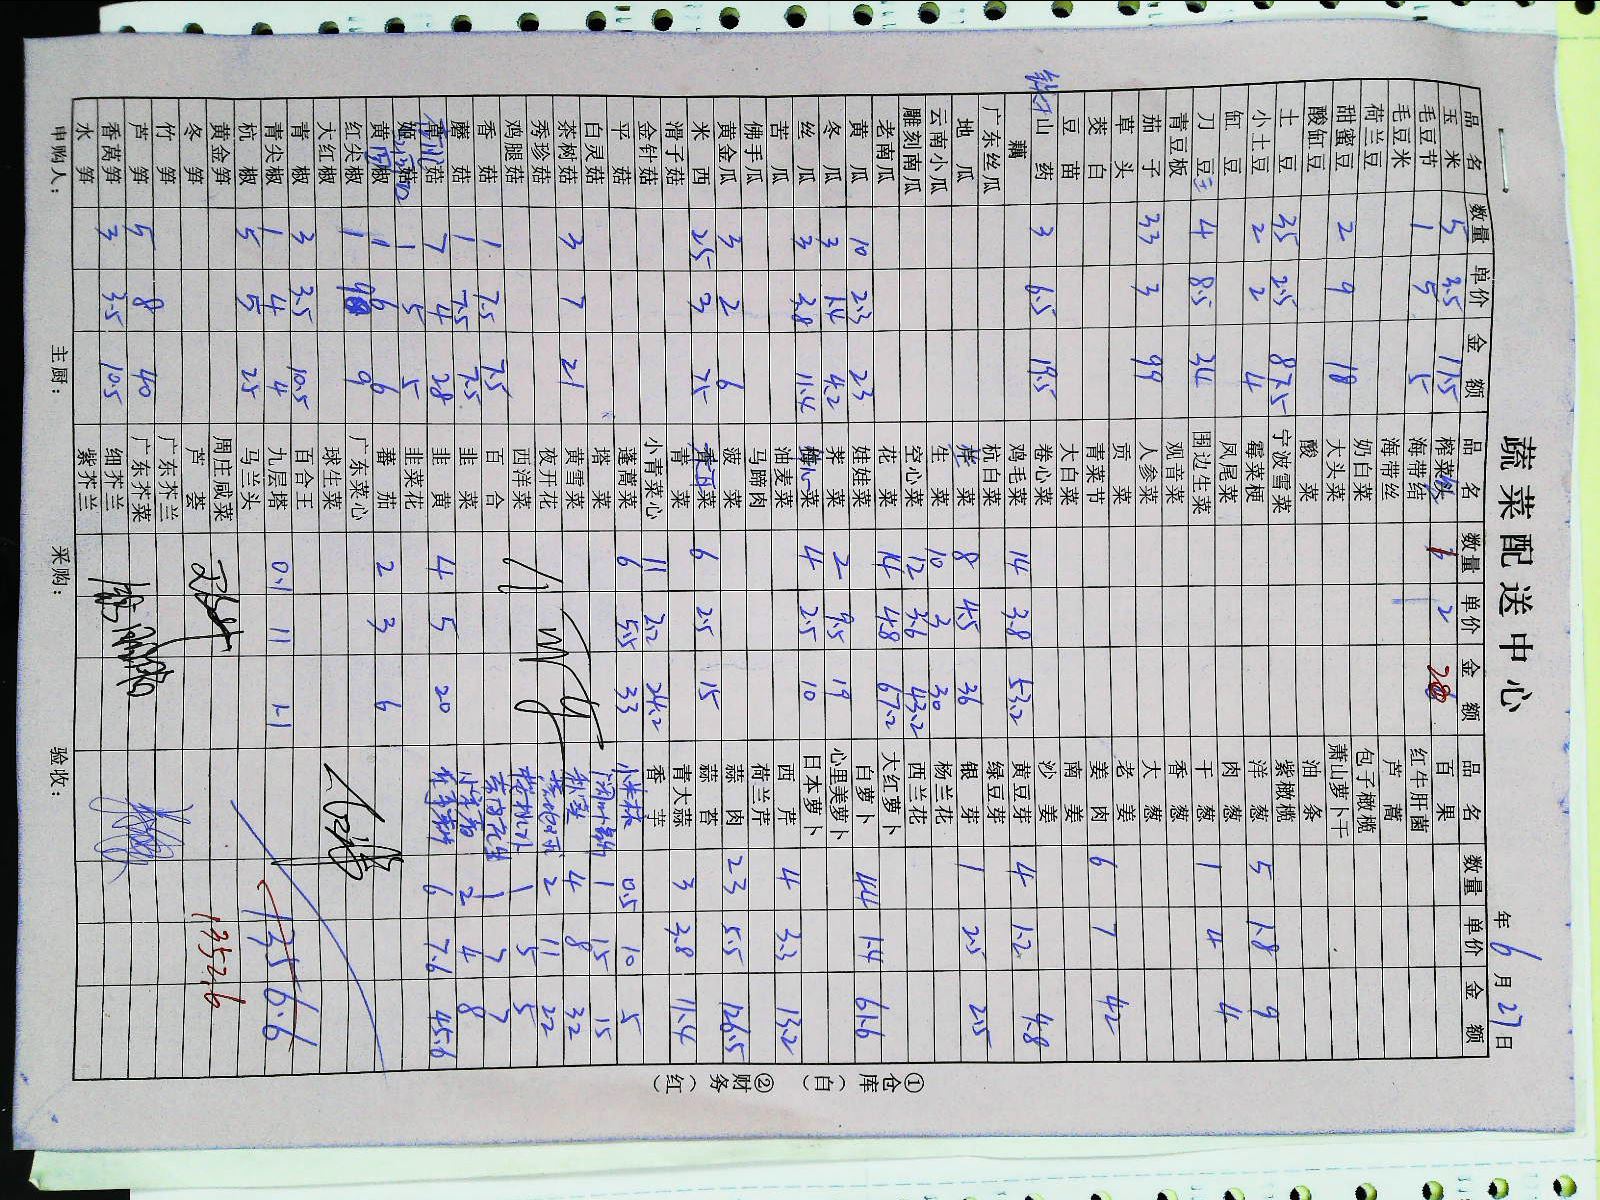 蔬菜配送中心
年 6 月 27 日
品名 数量 单价 金额 品名 数量 单价 金额 品名 数量 单价 金额
玉米 5 3.5 17.5 榨菜 2 百果
毛豆节 1 5 5 海带结 红牛肝菌
毛豆米 海带丝 芦蒿
荷兰豆 奶白菜 包子橄榄
甜蜜豆 2 9 18 大头菜 萧山萝卜干
酸缸豆 酸菜 油条
土豆 35 2.5 87.5 宁波雪菜 紫橄榄
小土豆 2 2 4 霉菜梗 洋葱 5 1.8 9
缸豆 凤尾菜 肉葱
刀豆 4 8.5 34 围边生菜 干葱 1 4 4
青豆板 观音菜 香葱
茄子 33 3 99 人参菜 大葱
草头 贡菜 老姜
茭白 青菜节 姜肉 6 7 42
豆苗 大白菜 南姜
山药 3 6.5 19.5 卷心菜 沙姜
藕 鸡毛菜 14 3.8 53.2 黄豆芽 4 1.2 4.8
广东丝瓜 杭白菜 绿豆芽
地瓜 菜 8 4.5 36 银芽 1 2.5 2.5
云南小瓜 生菜 10 3 30 杨兰花
雕刻南瓜 空心菜 12 3.6 43.2 西兰花
老南瓜 花菜 14 4.8 67.2 大红萝卜
黄瓜 10 2.3 23 娃娃菜 白萝卜 44 1.4 61.6
冬瓜 3 1.4 4.2 荠菜 2 9.5 19 心里美萝卜
丝瓜 3 3.8 11.4 菜 4 2.5 10 日本萝卜
苦瓜 油麦菜 西芹 4 3.3 13.2
佛手瓜 马蹄肉 荷兰芹
黄金瓜 3 2 6 菠菜 蒜肉 23 5.5 126.5
米西 25 3 75 菜 6 2.5 15 蒜苔
滑子菇 青菜 青大蒜 3 3.8 11.4
金针菇 小青菜心 11 2.2 24.2 香芋
平菇 蓬蒿菜 6 5.5 33 0.5 10 5
白灵菇 塔菜 1 15 15
茶树菇 3 7 21 黄雪菜 4 8 32
秀珍菇 夜开花 2 11 22
鸡腿菇 西洋菜 1 5 5
香菇 1 7.5 7.5 百合 1 7 7
蘑菇 1 7.5 7.5 韭菜 2 4 8
菇 7 4 28 韭黄 4 5 20 6 7.6 45.6
1 5 5 韭菜花
黄圆椒 1 6 6 蕃茄 2 3 6
红尖椒 1 9 9 广东菜心
大红椒 球生菜
青椒 3 3.5 10.5 百合王
青尖椒 1 4 4 九层塔 0.1 11 1.1 1356.6
杭椒 5 5 25 马兰头
黄金笋 周庄咸菜 1352.6
冬笋 芦荟
竹笋 广东芥兰
芦笋 5 8 40 广东芥菜
香莴笋 3 3.5 10.5 细芥兰
水笋 紫芥兰
申购人： 主厨： 采购： 验收：
①仓库（白） ②财务（红）